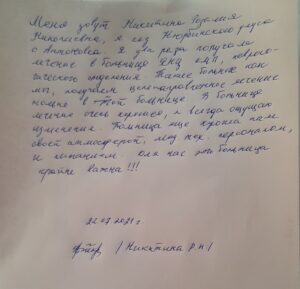 Меня зовут Никитина Розалия
Николаевна, я из Нюрбинского улуса
с. Антоновка. Я два раза получала
лечение в больнице ЯНЦ КМП, невроло-
гического отделения. Такие больные как
мы, получаем целенаправленное лечение
только в этой больнице. В больнице
лечение очень хорошее, я всегда ощущаю
изменения. Больница еще хороша нам
своей атмосферой, мед. персоналом,
и питанием. Для нас эта больница
крайне важна!!!
22.07.2021 г
/Никитина Р.Н/